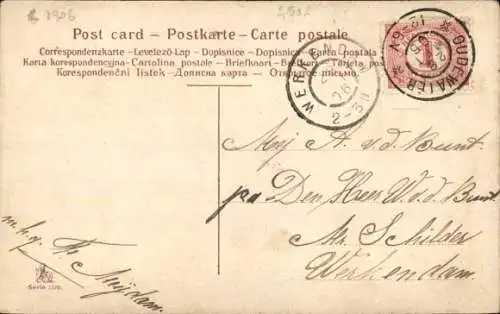 € 1906
Post card – Postkarte – Carte postale
Correspondenzkarte – Levelező-Lap – Dopisnice – Dopisnica – Carta postala
Karta korespondencyjna – Cartolina postale – Briefkaart – Brefkort – Tarjeta
Korespondenční lístek – Дописна карта – Открытое письмо
WERKENDAM
06
2-3N
OUDEWATER
12-6V
Mej A. v. d. Bunt.
pa Den Heer W. v. d. Bunt.
Mr. Schilder
Werkendam.
m.h.g.
Snijdam.
Serie